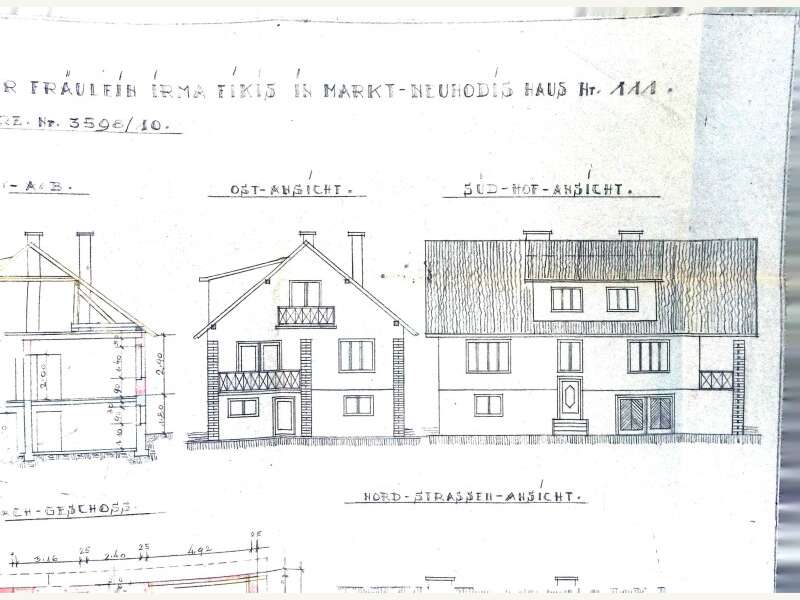 R FRÄULEIN IRMA FIKIS IN MARKT-NEUHODIS HAUS Nr. 111.
RE. Nr. 3598/10.
- A B.
OST-ANSICHT.
SÜD-HOF-ANSICHT.
2.00
2.40
1.80
CH-GESCHOSS.
NORD-STRASSEN-ANSICHT.
3.16 25 2.40 25 4.92 25